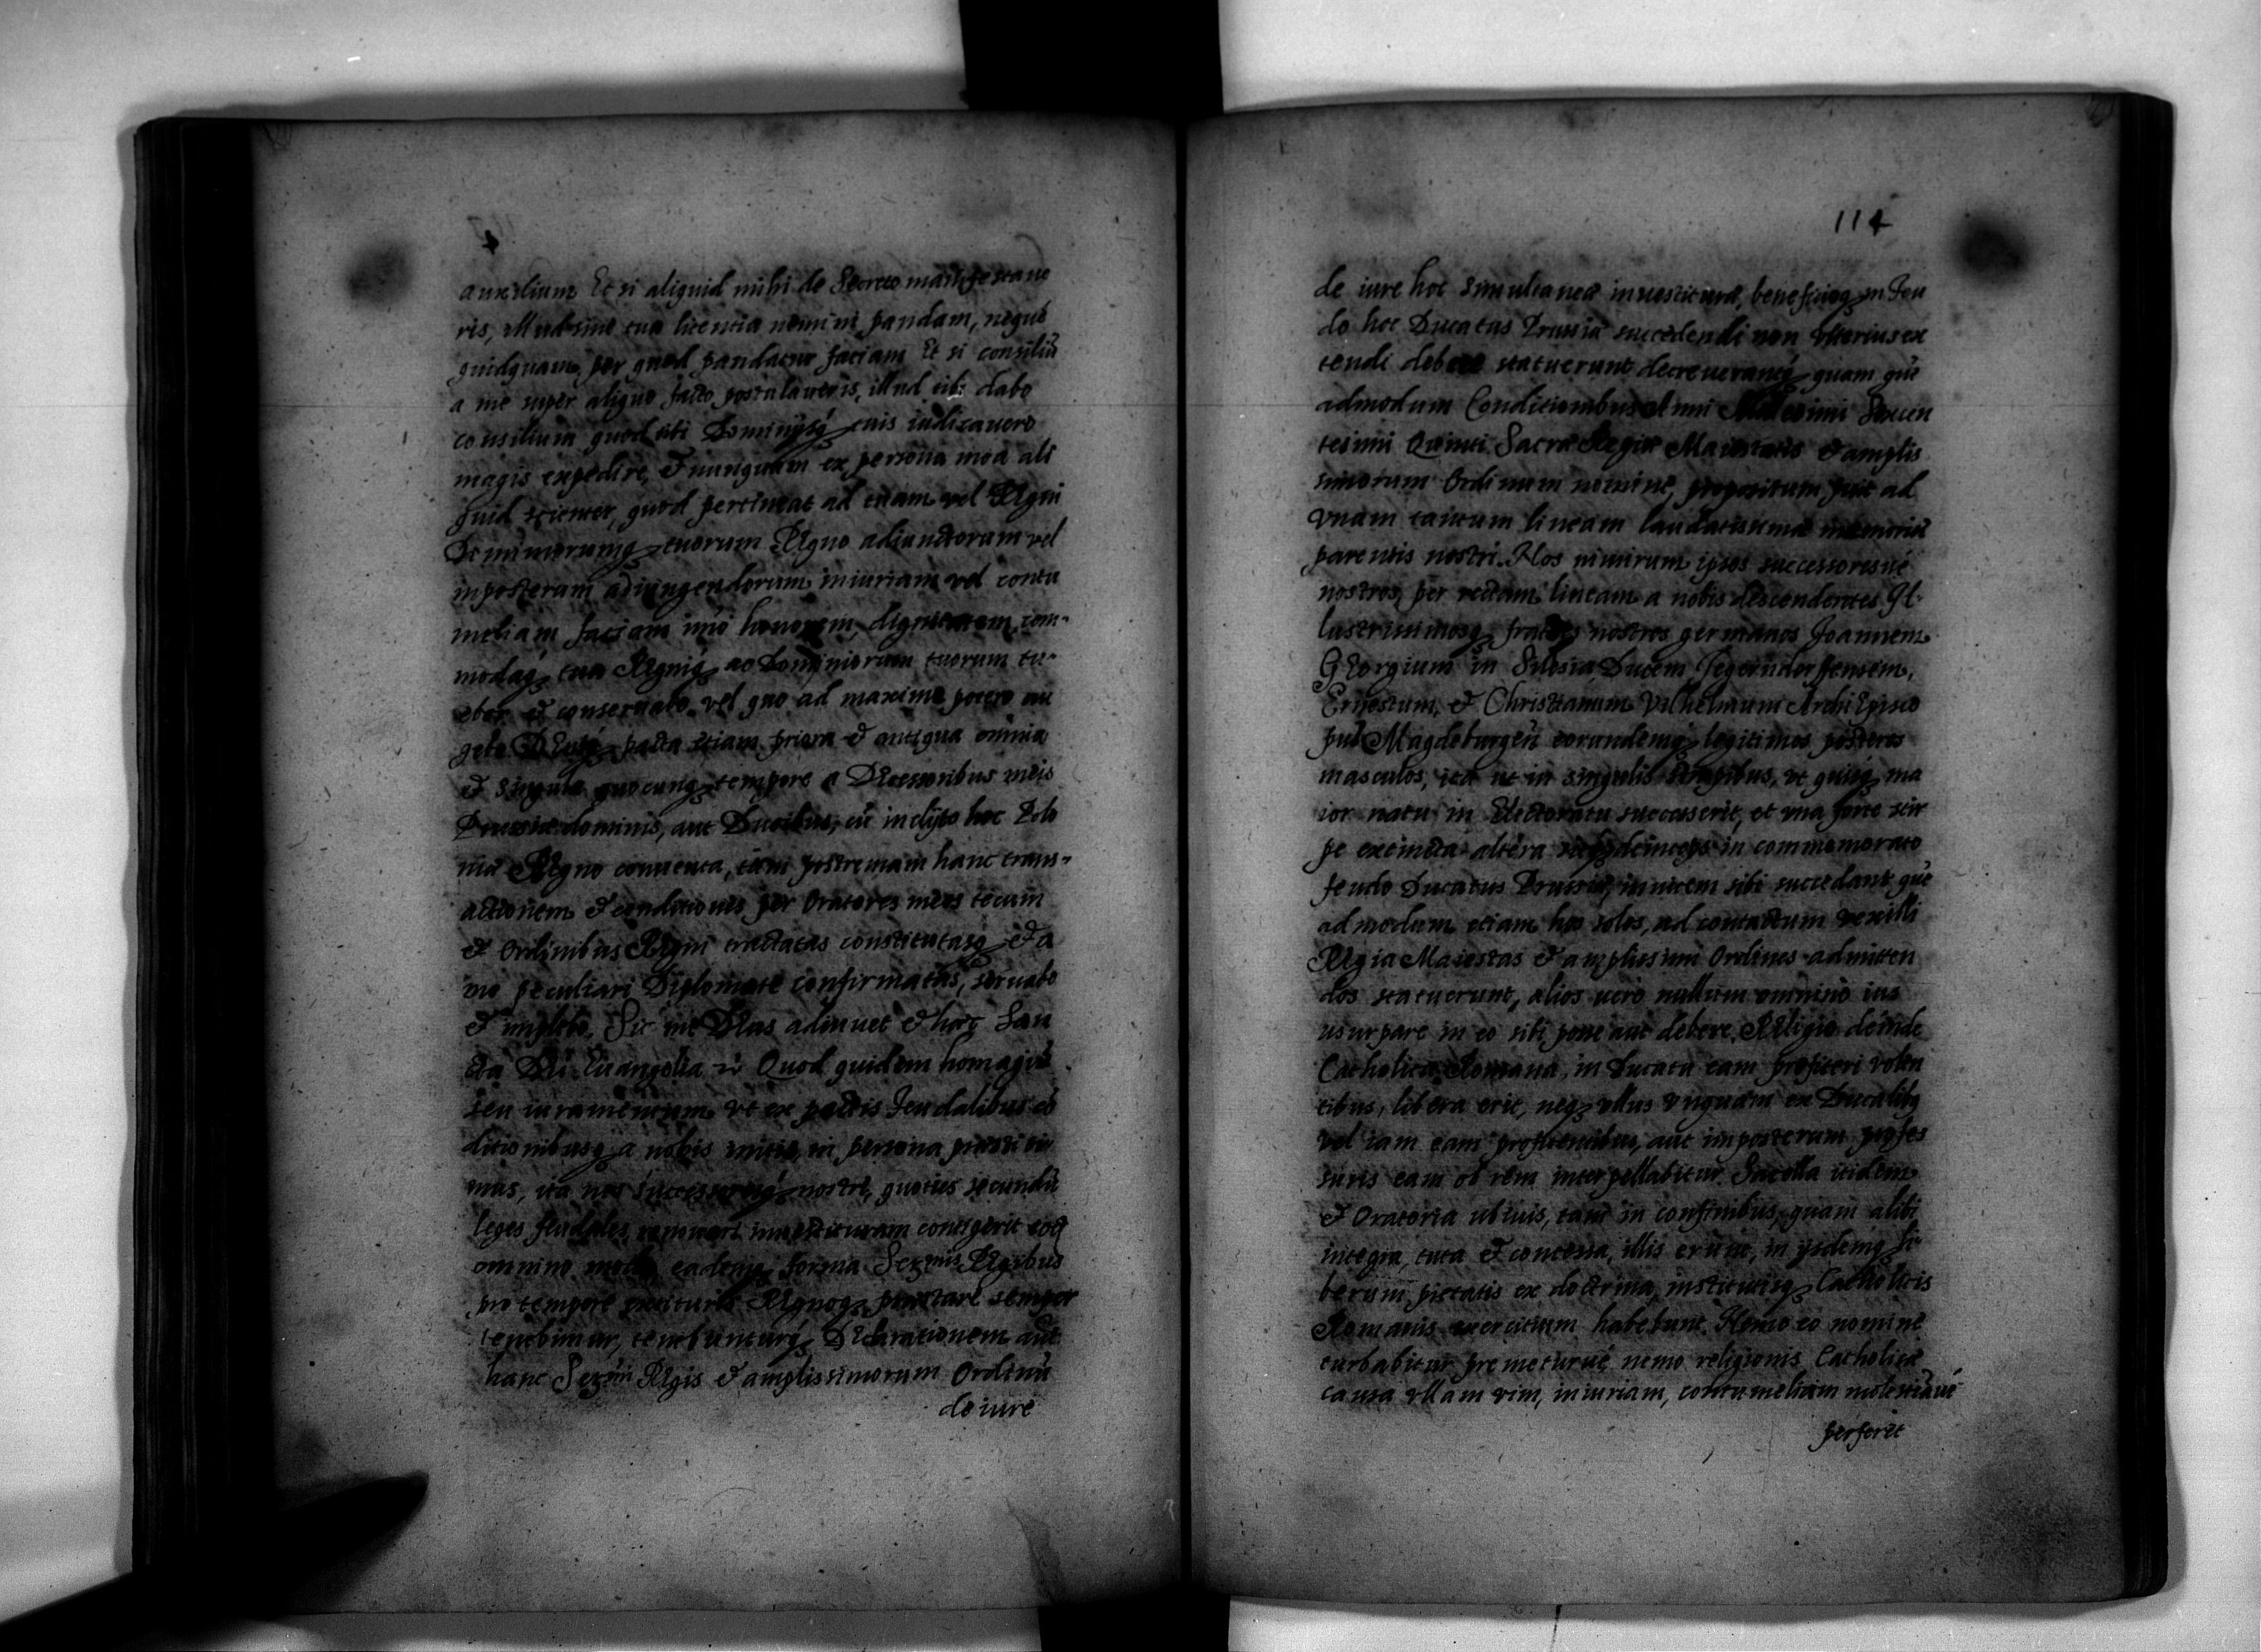 auxilium Et si aliquid mihi de Secreto manifestaue
ris, illud sine tua licentia nemini pandam, neque
quidquam, per quod pandatur faciam Et si consiliũ
a me super aliquo facto postulaueris, illud tibi dabo
consilium quod tibi Dominijsq tuis iudicauero
magis expedire, et nunquam ex persona mea ali
quid scienter, quod pertineat ad tuam vel Regni
Dominiorumq tuorum Regno adiunctorum vel
inposterum adiungendorum iniuriam vel contu
meliam faciam imo honorem, dignitatem, com-
modaq tua Regniq ac Dominiorum tuorum tu-
ebor et conseruabo vel quo ad maxime potero au
gebo pacta etiam priora et antiqua omnia
et singula quocunq tempore a Decessoribus meis
Prussiæ dominis, aut Ducibus, cũ inclyto hoc Polo
niæ Regno conuenta, tam postremam hanc trans-
actionem et conditiones per Oratores meos tecum
et Ordinibus Regni tractatas constitutasq et a
me peculiari Diplomate confirmatas, seruabo
et implebo. Sic me Deus adiuuet et hæc San
cta Dei Euangelia Quod quidem homagiũ
seu iuramentum vt ex pactis feudalibus cõ
ditionibusq a nobis in persona præsti tu
mus, ita nos successoresq nostri, quoties secundũ
leges feudales renouari inuestituram contigerit eodẽ
omnino modo eademq forma Serᵐⁱˢ Regibus
pro tempore Regnoq præstare semper
tenebimur, tenebunturq Declarationem aut
hanc Serᵐⁱ Regis et amplissimorum Ordinũ
de iure
114
de iure hoc simultaneæ inuestituræ, beneficioq in feu
do hoc Ducatus Prussiæ succedendi non vlterius ex
tendi debere statuerunt decreueruntq quam quẽ
admodum Conditionibus Anni Millesimi Sexcen
tesimi Quinti Sacræ Regiæ Maiestatis et amplis
simorum Ordinum nomine, propositum fuit ad
vnam tantum lineam laudatissimæ memoriæ
parentis nostri. Nos nimirum ipsos successoresue
nostros, per rectam lineam a nobis descendentes Il-
lustrissimosq fratres nostros germanos Joannem
Georgium in Silesia Ducem Jegerndorffensem,
Ernestum, et Christianum Vilhelmum Archi Episco
pũ Magdeburgeñ eorundemq legitimos posteros
masculos, ita ut in singulis stirpibus, vt quisq ma
ior natu in Electoratu successerit, et vna forte stir
pe extincta altera deinceps in commemorato
feudo Ducatus Prussiæ, inuicem sibi succedant quẽ
admodum etiam hos solos, ad contactum vexilli
Regia Maiestas et amplissimi Ordines admitten
dos statuerunt, alios uero nullum omnino ius
usurpare in eo sibi posse aut debere. Religio deinde
Catholica Romana, in Ducatu eam profiteri volen
tibus, libera erit, neq vllus vnquam ex Ducalibq
vel iam eam profitentibus, aut imposterum profes
suris eam ob rem interpellabitur Sacella itidem
et Oratoria ubiuis, tam in confinibus, quam alibi
integra, tuta et concessa, illis erunt, in ijsdemq li-
berum pietatis ex doctrina, institutisq Catholicis
Romanis exercitium habebunt. Nemo eo nomine
turbabitur premeturue, nemo religionis Catholicæ
causa vllam vim, iniuriam, contumeliam molestiãue
perferet